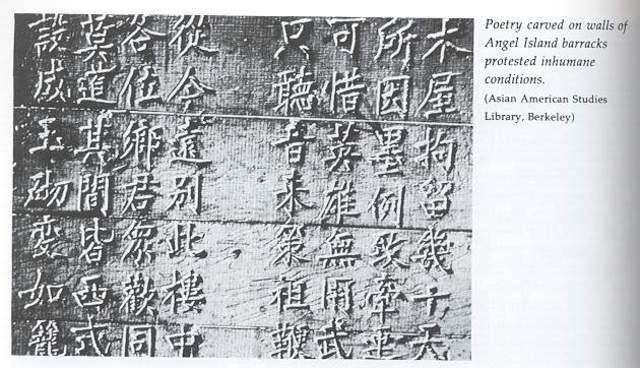 木屋拘留幾十天
所囚墨例致牽連
可惜英雄無用武
只聽音來策祖鞭
從今遠別此樓中
各位鄉君眾歡同
莫道其間皆西式
設成玉砌變如籠
Poetry carved on walls of
Angel Island barracks
protested inhumane
conditions.
(Asian American Studies
Library, Berkeley)